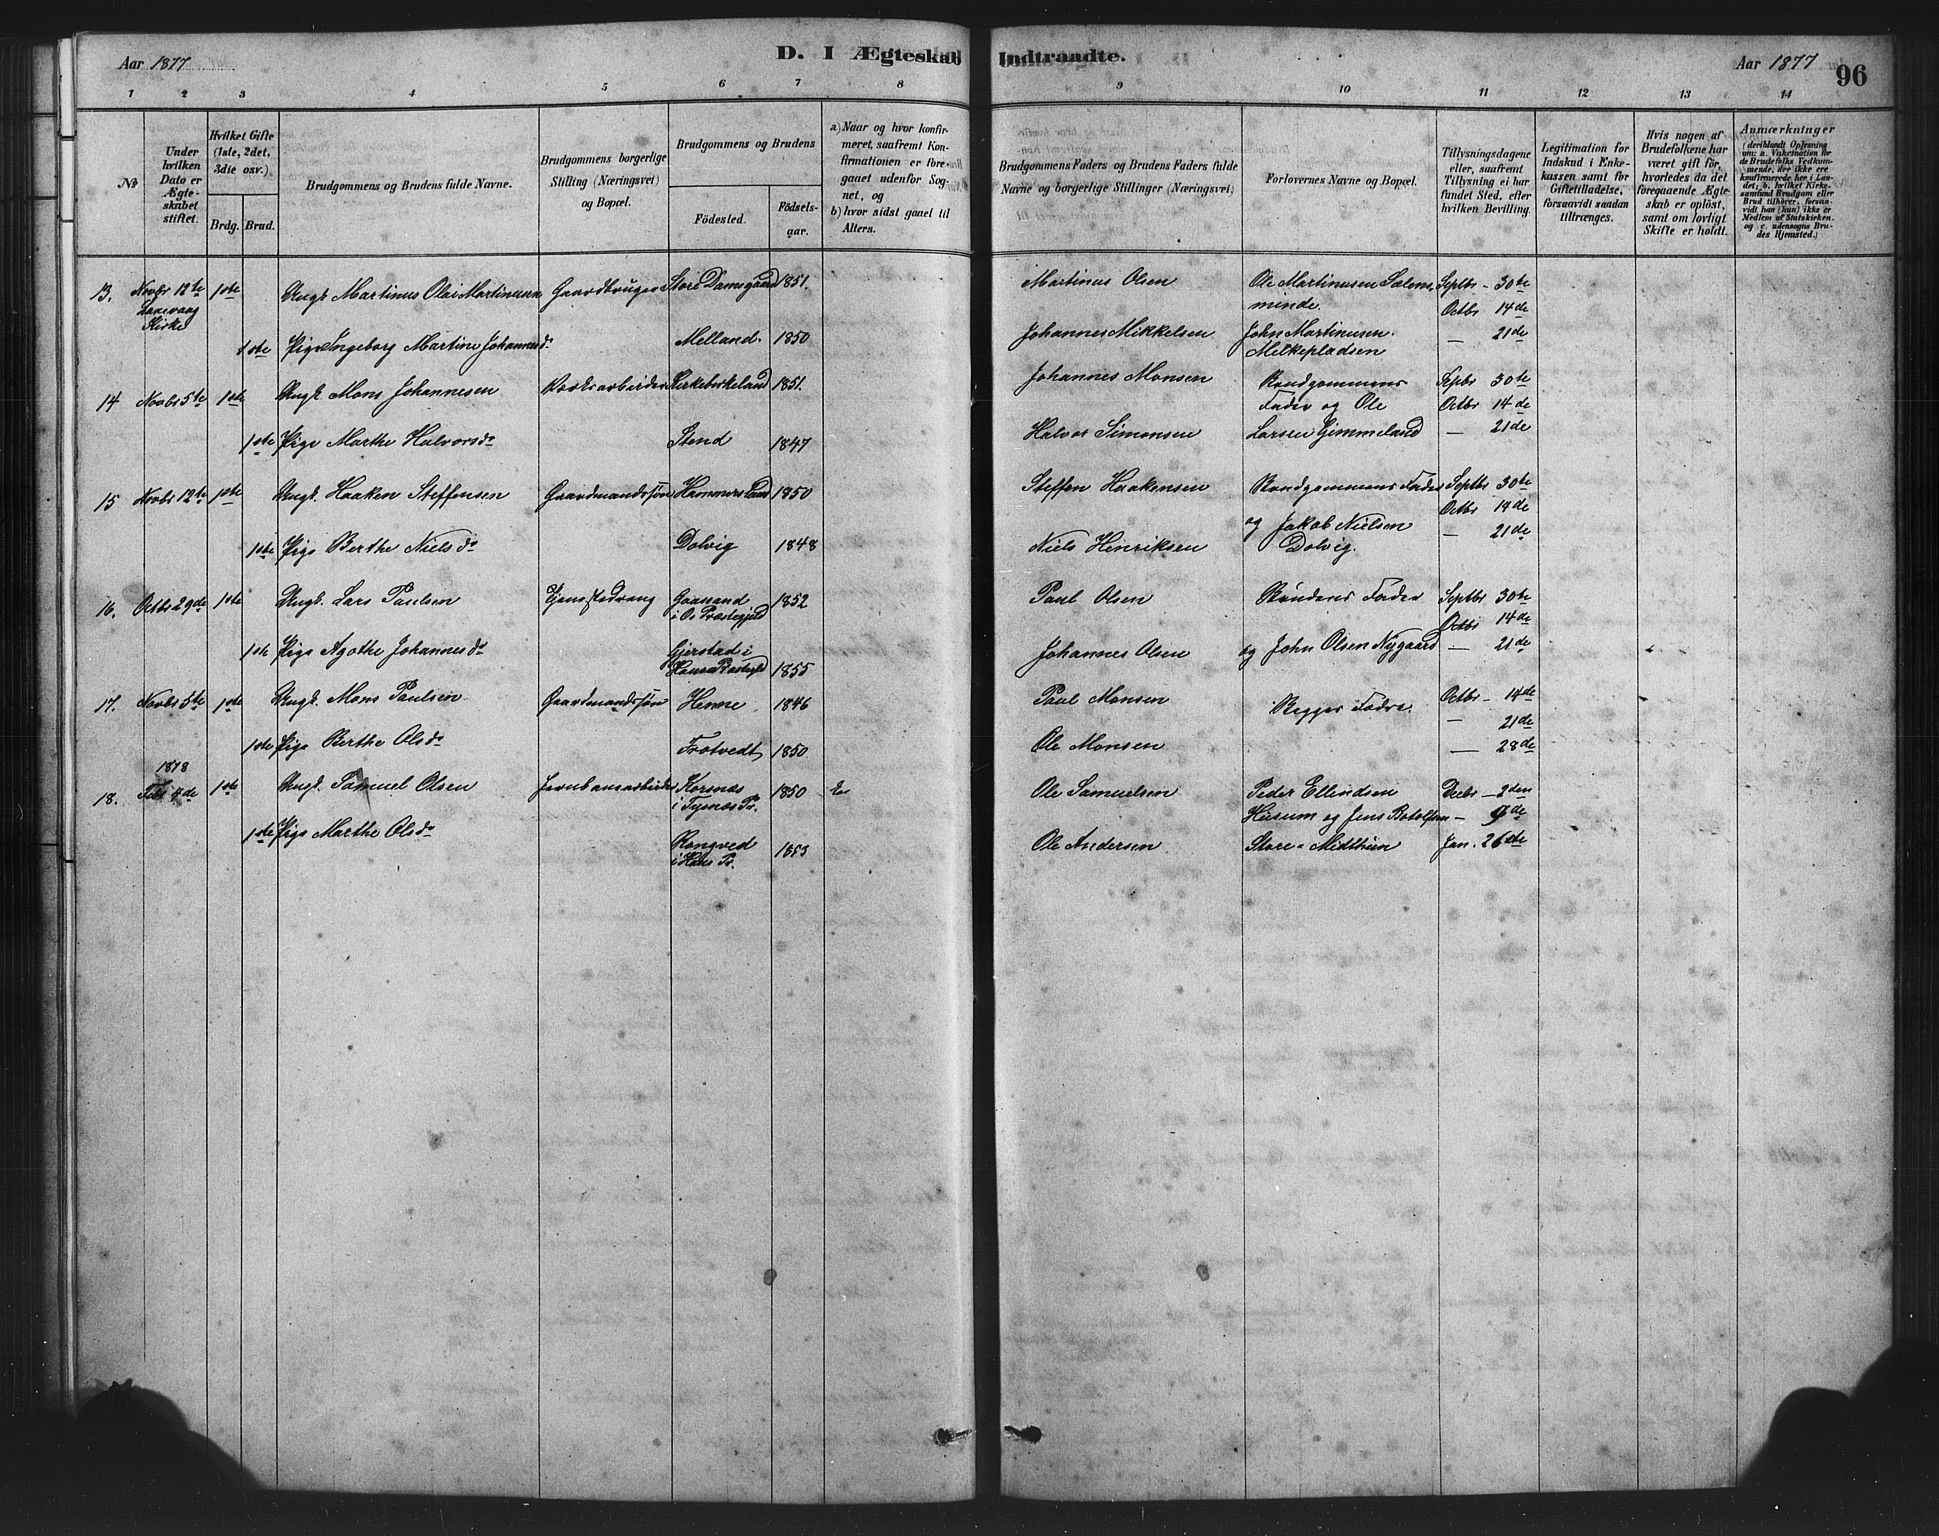 Aar 1877
D. I Ægteskab
Indtraadte.
Aar 1877
96
1 2 3 4 5 6 7 8 9 10 11 12 13 14
No
Under hvilken Dato er Ægteskabet stiftet.
Hvilket Gifte (1ste, 2det, 3die osv.)
Brdg. Brud.
Brudgommens og Brudens fulde Navne.
Brudgommens borgerlige Stilling (Næringsvei) og Bopæl.
Brudgommens og Brudens
Födested.
Födsels-aar.
a) Naar og hvor konfirmeret, saafremt Konfirmationen er foregaaet udenfor Sognet, og
b) hvor sidst gaaet til Alters.
Brudgommens Faders og Brudens Faders fulde Navne og borgerlige Stillinger (Næringsvei)
Forlovernes Navne og Bopæl.
Tillysningsdagene eller, saafremt Tillysning ei har fundet Sted, efter hvilken Bevilling.
Legitimation for Indskud i Enkekassen samt for Giftetilladelse, forsaavidt saadan tiltrænges.
Hvis nogen af Brudefolkene har været gift för, hvorledes da det foregaaende Ægteskab er oplöst, samt om lovligt Skifte er holdt.
Anmærkninger (deriblandt Oplysning om: a. Vakcination for de Brudefolks Vedkommende, der ikke ere konfirmerede her i Landet; b. hvilket Kirkesamfund Brudgom eller Brud tilhörer, forsaavidt han (hun) ikke er Medlem af Statskirken, og c. udensogns Brudes Hjemsted.)
13. Novbr 12te 1ste Ungk. Martinus Olai Martinusen Gaardbruger Store Damsgaard 1851. Martinus Olsen Ole Martinusen Salems Septbr 30te
Laxevaag Kirke minde. Octbr 14de
1ste Pige Ingeborg Martine Johannesdr Melland. 1850 Johannes Mikkelsen John Martinusen. — 21de
Melkepladsen
14 Novbr 5te 1ste Ungk. Mons Johannesen Værksarbeider Kirkebirkeland 1851. Johannes Monsen Brudgommens Septbr 30te
Fader og Ole Octbr 14de
1ste Pige Marthe Halvorsdr Stend 1847 Halvor Simonsen Larsen Gimmeland — 21de
15 Novbr 12te 1ste Ungk. Haaken Steffensen Gaardmandssøn Hammersland 1850 Steffen Haakensen Brudgommens Fader Septbr 30te
og Jakob Nielsen Octbr 14de
1ste Pige Berthe Nielsdr Dolvig 1848 Niels Henriksen Dolvig. — 21de
16. Octbr 29de 1ste Ungk. Lars Paulsen Gaasand i Os Præstegjeld 1852 Paul Olsen Brudens Fader Septbr 30te
Octbr 14de
1ste Pige Agothe Johannesdr Gjerstad i 1855 Johannes Olsen og John Olsen Nygaard — 21de
17. Novbr 5te 1ste Ungk. Mons Paulsen Gaardmandssøn Henne 1846 Paul Monsen Begges Fædre. Octbr — 14de
— 21de
1ste Pige Berthe Olsdr Trotvedt 1850 Ole Monsen — 28de
1878
18. Febr 4de 1ste Ungk. Samuel Olsen Jernbanearbeider Korsnæs i Tysnæs Pr. 1850 Ole Samuelsen Peder Ellendsen Decbr — 2den
Husum og Jens Botolfsen — 9de
1ste Pige Marthe Olsdr Rongved i Hau's Pr. 1853 Ole Andersen Store - Midthun Jan. 26de